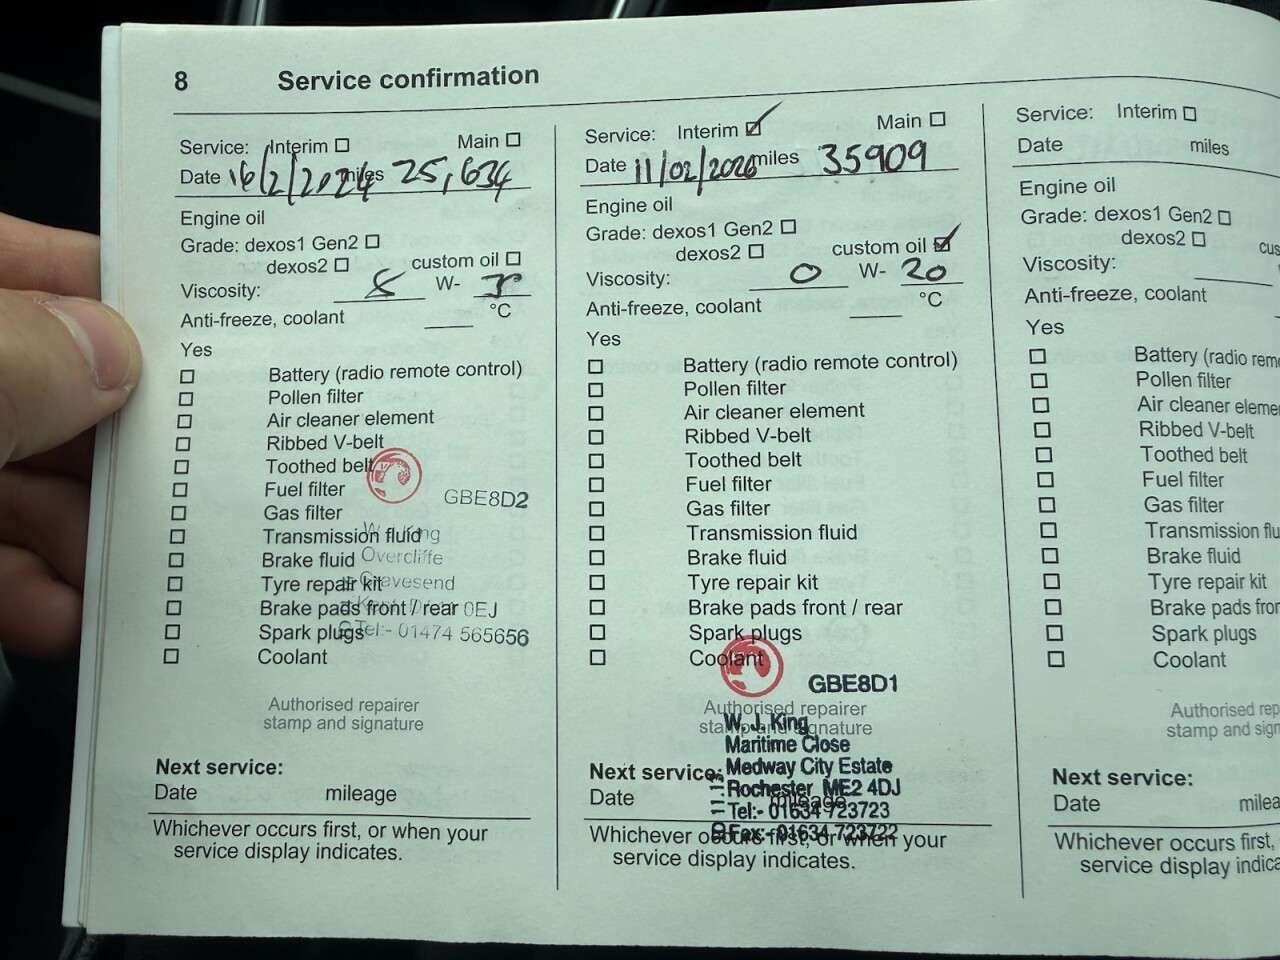 8 Service confirmation
Service: Interim ☐ Main ☐
Date 16/2/2024 miles 25,634
Engine oil
Grade: dexos1 Gen2 ☐
dexos2 ☐ custom oil ☐
Viscosity: W-
Anti-freeze, coolant °C
Yes
☐ Battery (radio remote control)
☐ Pollen filter
☐ Air cleaner element
☐ Ribbed V-belt
☐ Toothed belt
☐ Fuel filter
GBE8D2
☐ Gas filter
☐ Transmission fluid
King
☐ Brake fluid
Overcliffe
☐ Tyre repair kit
Gravesend
☐ Brake pads front / rear
0EJ
☐ Spark plugs
Tel:- 01474 565656
☐ Coolant
Authorised repairer
stamp and signature
Next service:
Date mileage
Whichever occurs first, or when your
service display indicates.
Service: Interim ☑ Main ☐
Date 11/02/2026 miles 35909
Engine oil
Grade: dexos1 Gen2 ☐
dexos2 ☐ custom oil ☑
Viscosity: 0 W- 20
Anti-freeze, coolant °C
Yes
☐ Battery (radio remote control)
☐ Pollen filter
☐ Air cleaner element
☐ Ribbed V-belt
☐ Toothed belt
☐ Fuel filter
☐ Gas filter
☐ Transmission fluid
☐ Brake fluid
☐ Tyre repair kit
☐ Brake pads front / rear
☐ Spark plugs
☐ Coolant
GBE8D1
Authorised repairer
stamp and signature
W. J. King
Maritime Close
Medway City Estate
Rochester ME2 4DJ
Tel:- 01634 723723
Fax:- 01634 723722
Next service:
Date mileage
Whichever occurs first, or when your
service display indicates.
Service: Interim ☐
Date miles
Engine oil
Grade: dexos1 Gen2 ☐
dexos2 ☐ cus
Viscosity:
Anti-freeze, coolant
Yes
☐ Battery (radio rem
☐ Pollen filter
☐ Air cleaner eleme
☐ Ribbed V-belt
☐ Toothed belt
☐ Fuel filter
☐ Gas filter
☐ Transmission flu
☐ Brake fluid
☐ Tyre repair kit
☐ Brake pads fron
☐ Spark plugs
☐ Coolant
Authorised rep
stamp and sign
Next service:
Date milea
Whichever occurs first,
service display indica